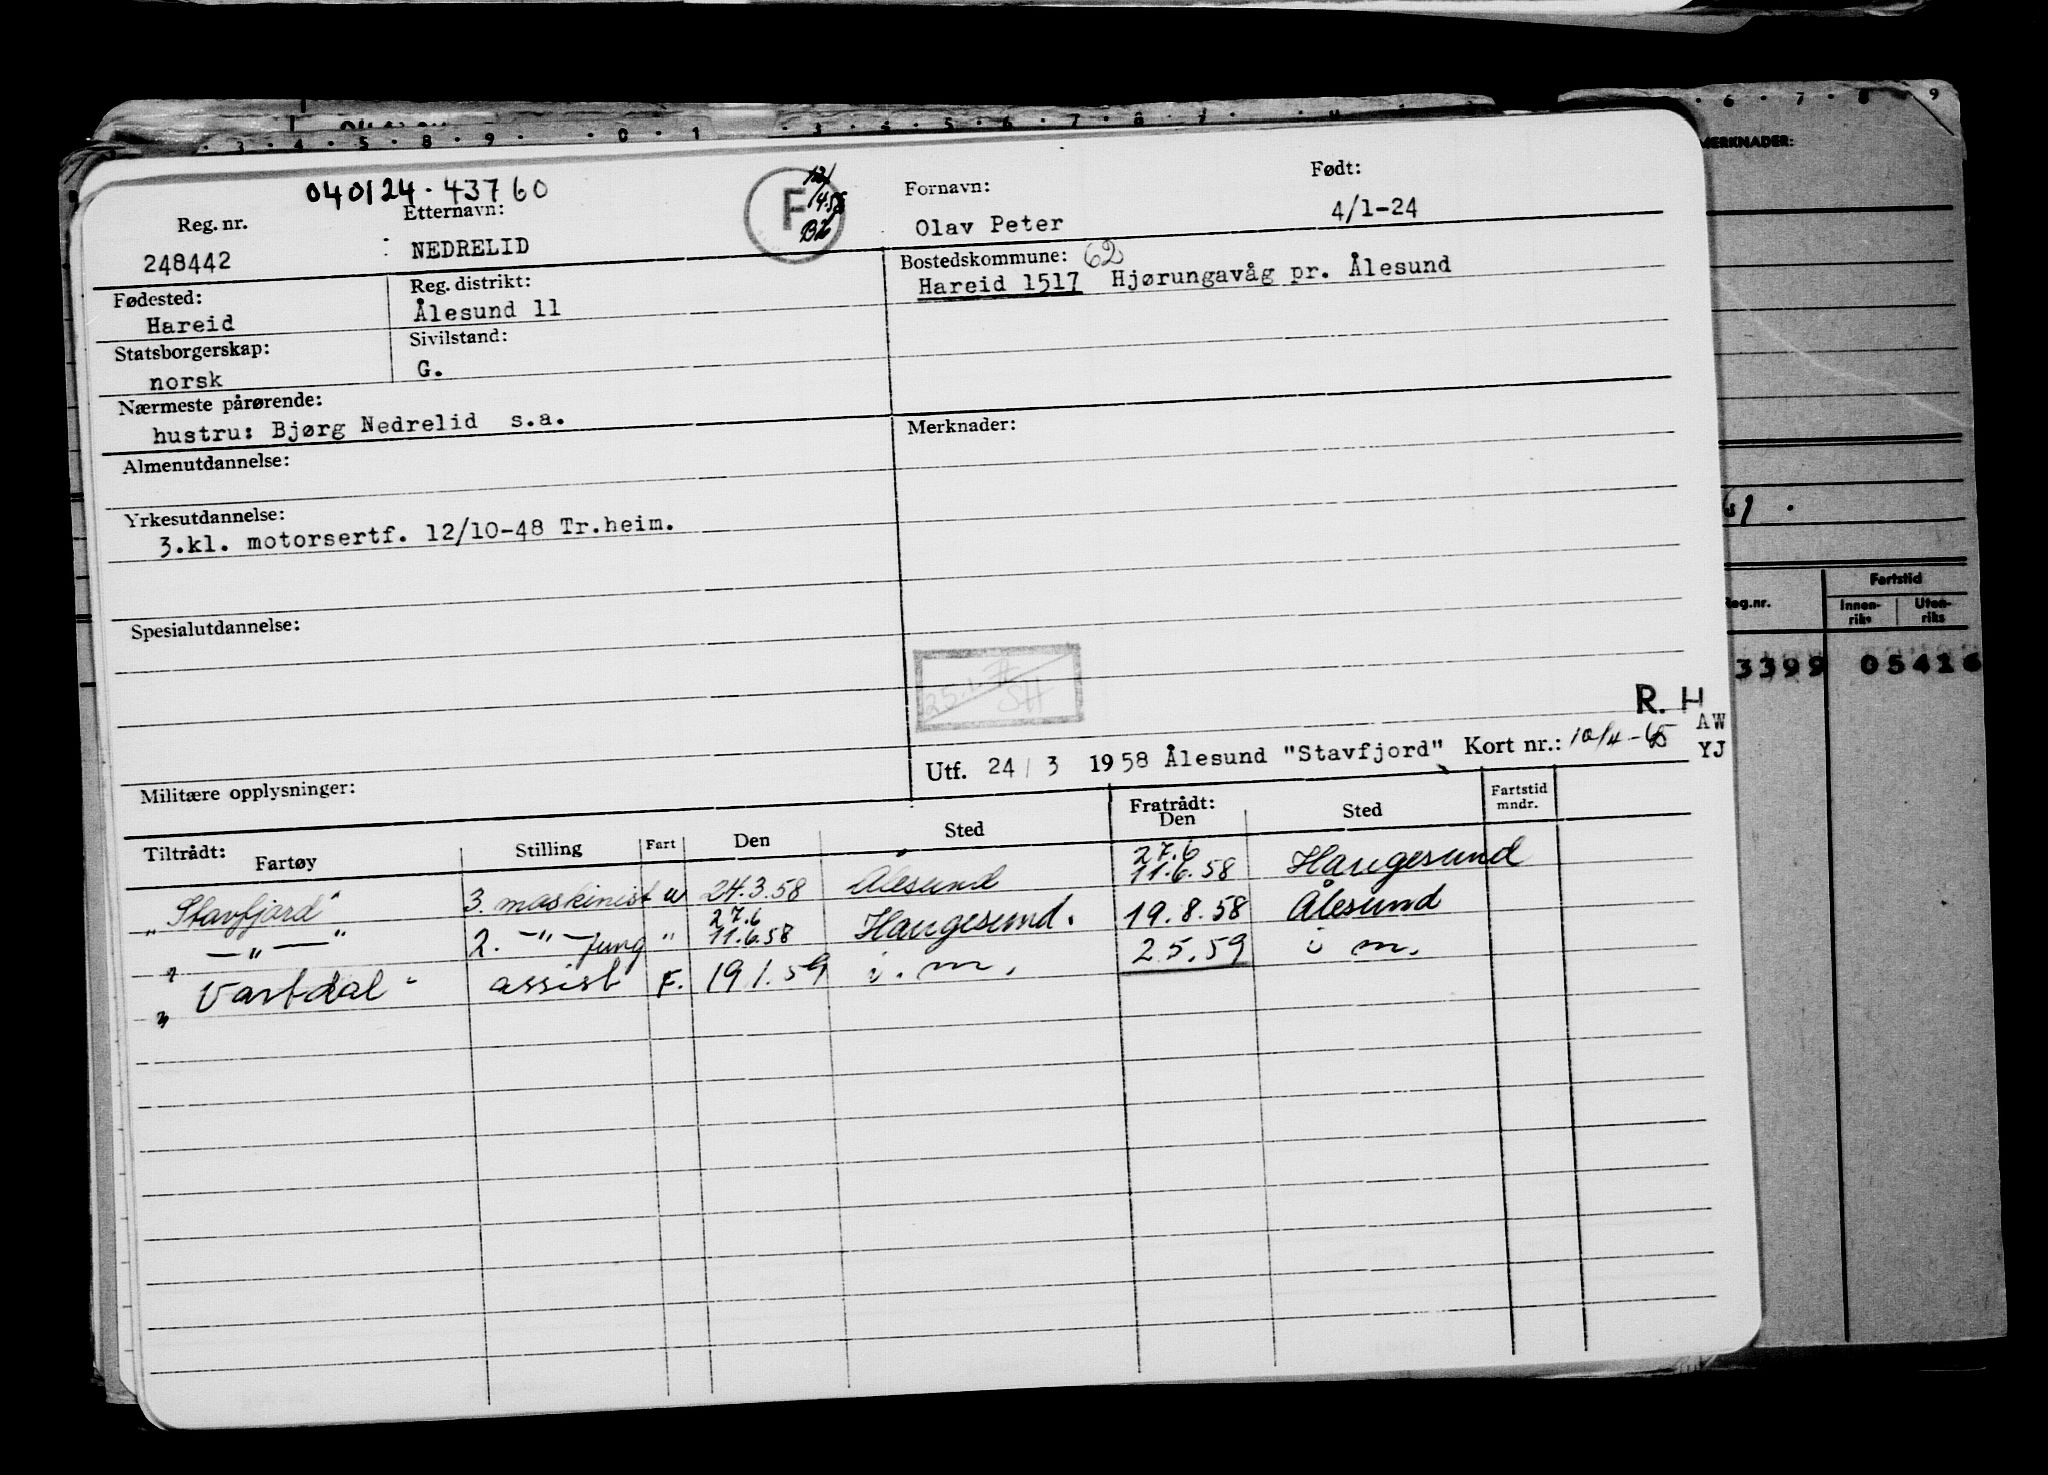 040124 · 43760
Reg. nr. Etternavn: F Fornavn: Født:
248442 NEDRELID Olav Peter 4/1-24
Fødested: Reg. distrikt: Bostedskommune: 62
Hareid Ålesund 11 Hareid 1517 Hjørungavåg pr. Ålesund
Statsborgerskap: Sivilstand:
norsk G.
Nærmeste pårørende:
hustru: Bjørg Nedrelid s.a.
Merknader:
Almenutdannelse:
Yrkesutdannelse:
3.kl. motorsertf. 12/10-48 Tr.heim.
Spesialutdannelse:
R. H
AW
YJ
Utf. 24/3 1958 Ålesund "Stavfjord" Kort nr.:
Militære opplysninger:
Tiltrådt: Fartøy Stilling Fart Den Sted Fratrådt: Den Sted Fartstid mndr.
27.6
"Stavfjord" 3. maskinist u 24.3.58 Ålesund 11.6.58 Haugesund
27.6
— " — 2. — " — fung " 11.6.58 Haugesund. 19.8.58 Ålesund
" Vartdal " assist F. 19 1.59 i. m. 2.5.59 i m.
MERKNADER:
Reg.nr. Fartstid
Innen-riks Uten-riks
3399 05416